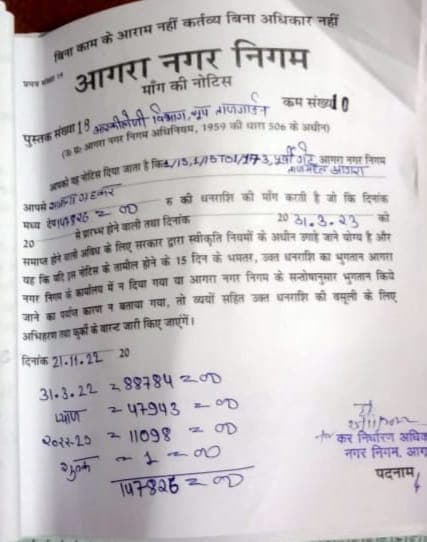 बिना काम के आराम नहीं कर्तव्य बिना अधिकार नहीं
आगरा नगर निगम
माँग की नोटिस
पुस्तक संख्या 18 कम संख्या 10
(उ प्र आगरा नगर निगम अधिनियम, 1959 की धारा 506 के अधीन)
आपको यह नोटिस दिया जाता है कि पूर्वी गेट आगरा नगर निगम
ताजमहल आगरा
आपसे रु की धनराशि की माँग करती है जो कि दिनांक
मध्य देय 147826 = 00 20 31.3.23 को
20 से प्रारम्भ होने वाली तथा दिनांक
समाप्त होने वाली अवधि के लिए सरकार द्वारा स्वीकृति नियमों के अधीन उगाहे जाने योग्य है और
यह कि यदि इस नोटिस के तामील होने के 15 दिन के भमतर, उक्त धनराशि का भुगतान आगरा
नगर निगम के कार्यालय में न दिया गया या आगरा नगर निगम के सन्तोषानुसार भुगतान किये
जाने का पर्याप्त कारण न बताया गया, तो व्ययों सहित उक्त धनराशि की वसूली के लिए
अभिहरण तथा कुर्की के वारन्ट जारी किए जाएंगें।
दिनांक 21.11.22 20
31.3.22 = 88784 = 00
ब्याज = 47943 = 00
= 11098 = 00
शुल्क = 1 = 00
147826 = 00
कर निर्धारण अधिक
नगर निगम, आग
पदनाम